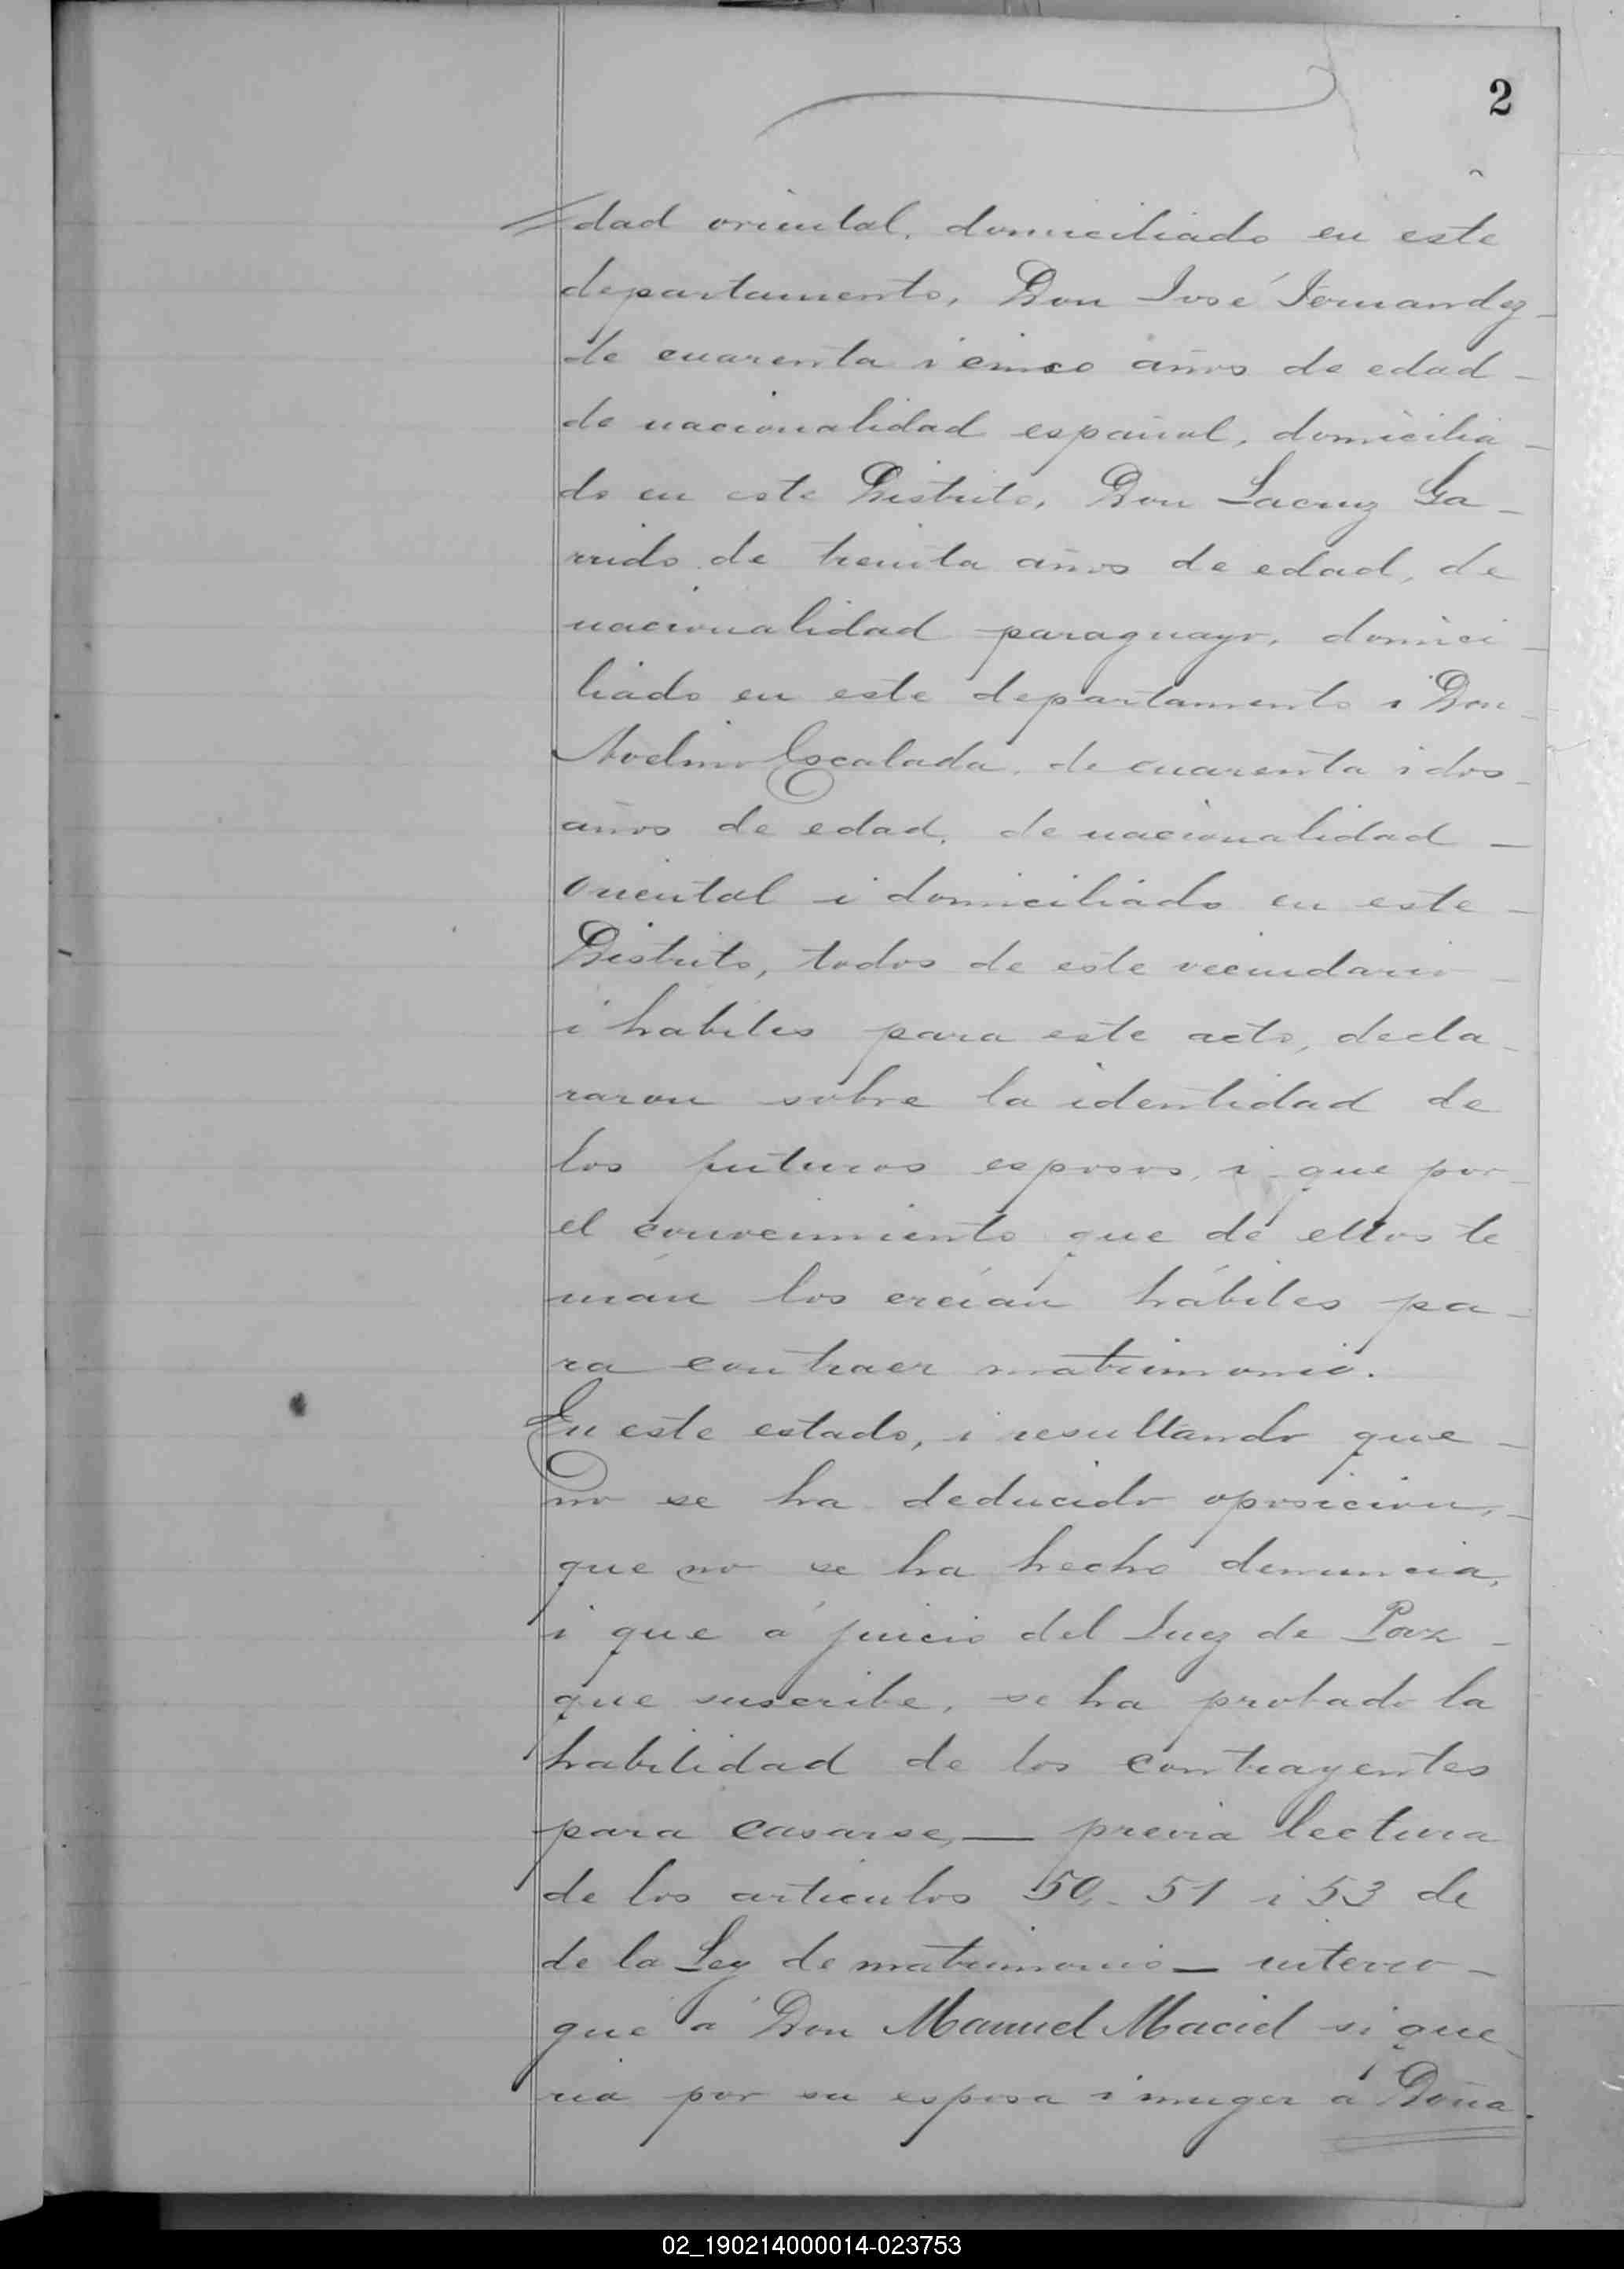 2
dad oriental, domiciliado en este
departamento, Don José Fernandez
de cuarenta i cinco años de edad
de nacionalidad español, domicilia-
do en este Distrito, Don Lacruz Ga-
rrido de treinta años de edad, de
nacionalidad paraguayo, domici-
liado en este departamento i Don
Avelino Escalada, de cuarenta i dos
años de edad, de nacionalidad
oriental i domiciliado en este
Distrito, todos de este vecindario
i habiles para este acto, decla-
raron sobre la identidad de
los futuros esposos, i que por
el conocimiento que de ellos te
nián los creían hábiles pa-
ra contraer matrimonio.
En este estado, i resultando que
no se ha deducido oposicion,
que no se ha hecho denuncia,
i que á juicio del Juez de Paz
que suscribe, se ha probado la
habilidad de los contrayentes
para casarse,— previa lectura
de los articulos 50.- 51 i 53 de
de la Ley de matrimonio— interro-
gué á Don Manuel Maciel si que
ria por su esposa i muger á Doña
02_190214000014-023753